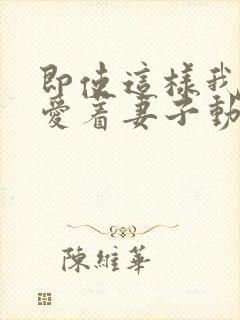 即使這樣我
愛着妻子動
陳維華